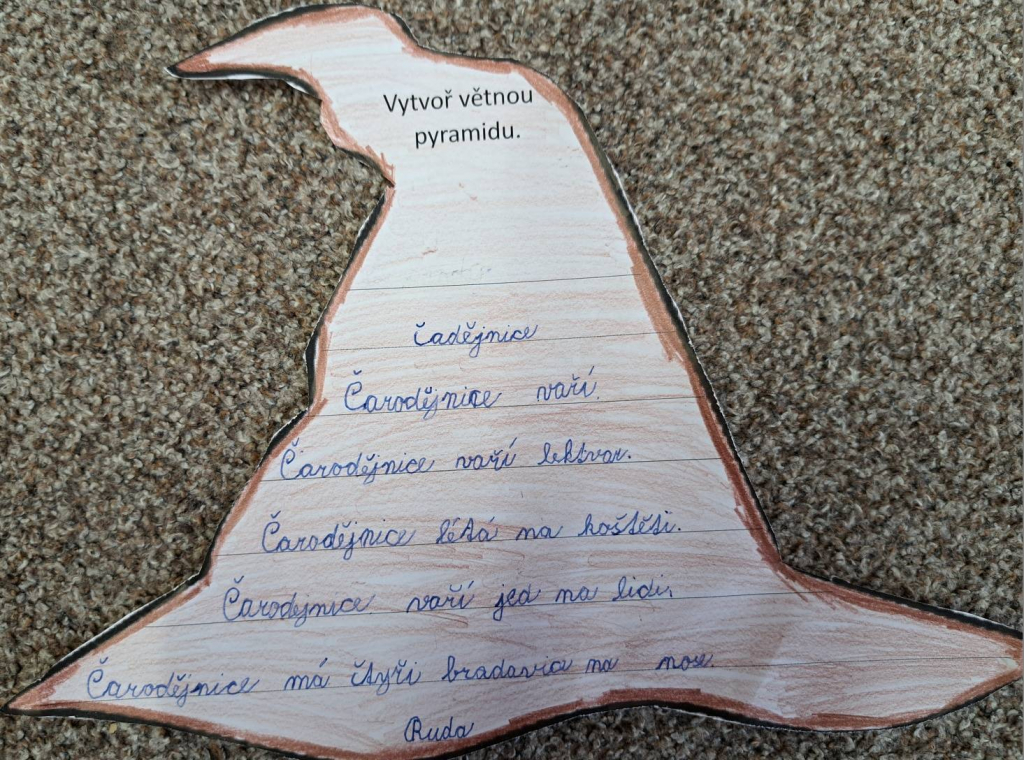 Vytvoř větnou
pyramidu.
čadějnice
Čarodějnice vaří.
Čarodějnice vaří lektvar.
Čarodějnice létá na koštěti.
Čarodejnice vaří jed na lidi.
Čarodějnice má čtyři bradavice na nose.
Ruda